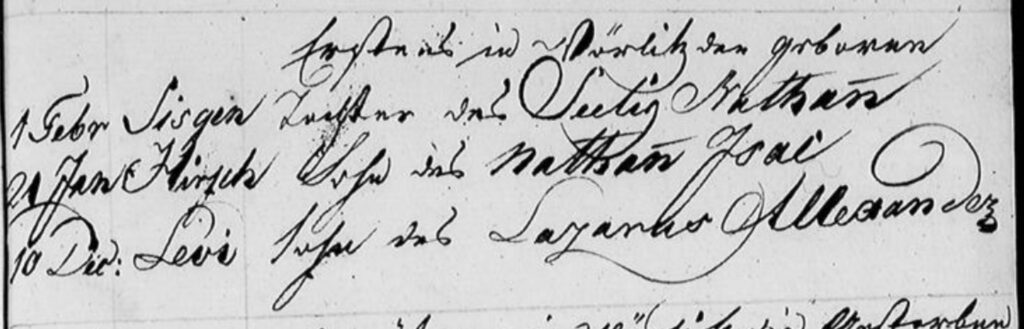 Erstens in Wörlitz den geboren
1 Febr Sisgen Tochter des Seelig Nathan̄
21 Jan Hirsch Sohn des Nathan̄ Isac
10 Dec: Levi Sohn des Lazarus Allexander